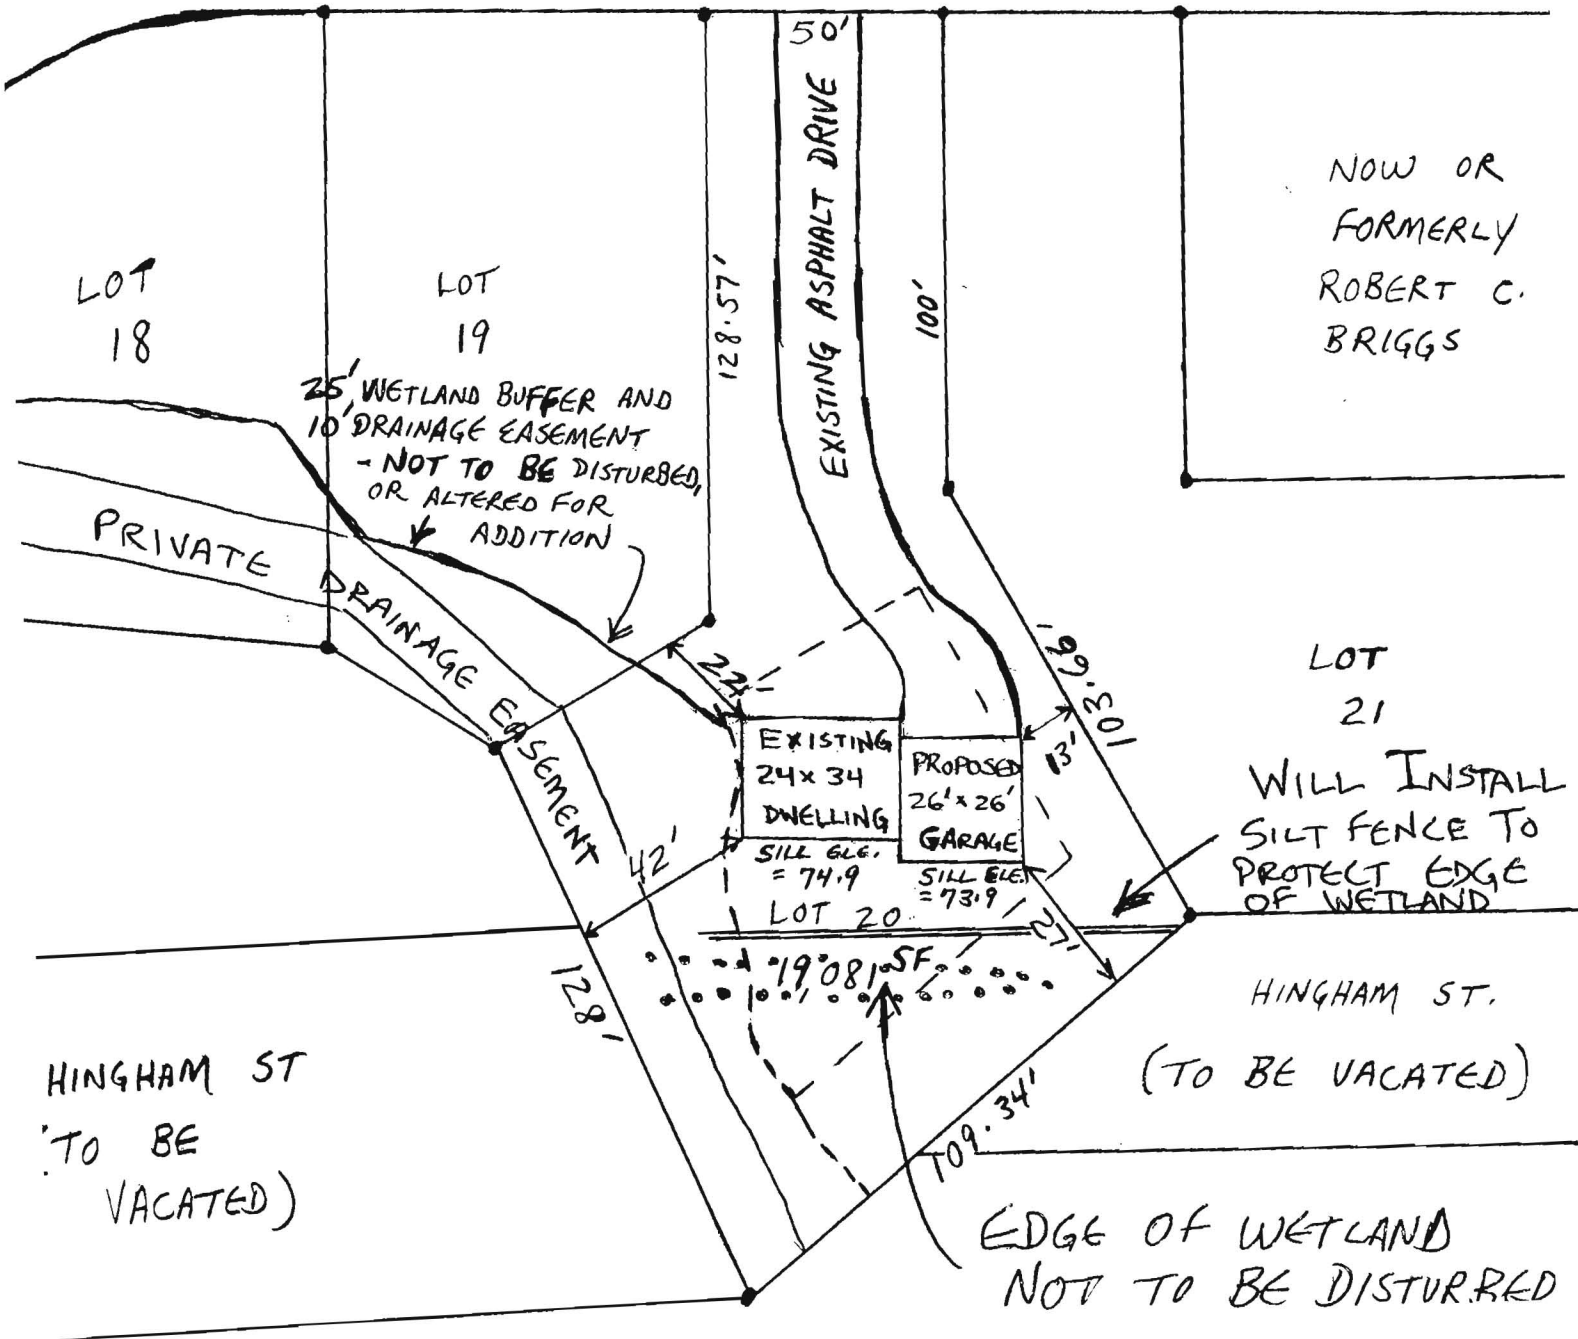 50'
EXISTING ASPHALT DRIVE
NOW OR
FORMERLY
ROBERT C.
BRIGGS
LOT
18
LOT
19
128.57'
100'
25' WETLAND BUFFER AND
10' DRAINAGE EASEMENT
- NOT TO BE DISTURBED,
OR ALTERED FOR
ADDITION
PRIVATE DRAINAGE EASEMENT
22'
103.66'
13'
LOT
21
EXISTING
24x34
DWELLING
PROPOSED
26'x26'
GARAGE
SILL ELE.
= 74.9
SILL ELE.
= 73.9
WILL INSTALL
SILT FENCE TO
PROTECT EDGE
OF WETLAND
42'
27'
LOT 20
19,081 SF
128'
109.34'
HINGHAM ST.
(TO BE VACATED)
HINGHAM ST
TO BE
VACATED)
EDGE OF WETLAND
NOT TO BE DISTURBED